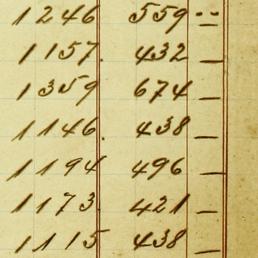 1246 559 --
1157. 432 —
1359 674 —
1146. 438 —
1194 496 —
1173. 421 —
1115 438 —